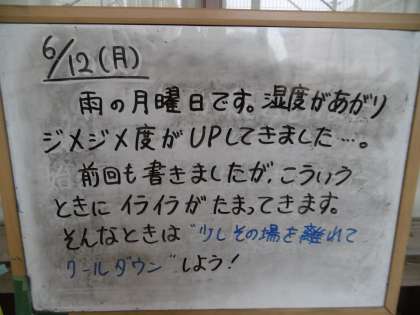 6/12(月)
雨の月曜日です。湿度があがり
ジメジメ度がUPしてきました…。
前回も書きましたが、こういう
ときにイライラがたまってきます。
そんなときは"少しその場を離れて
クールダウン"しよう!